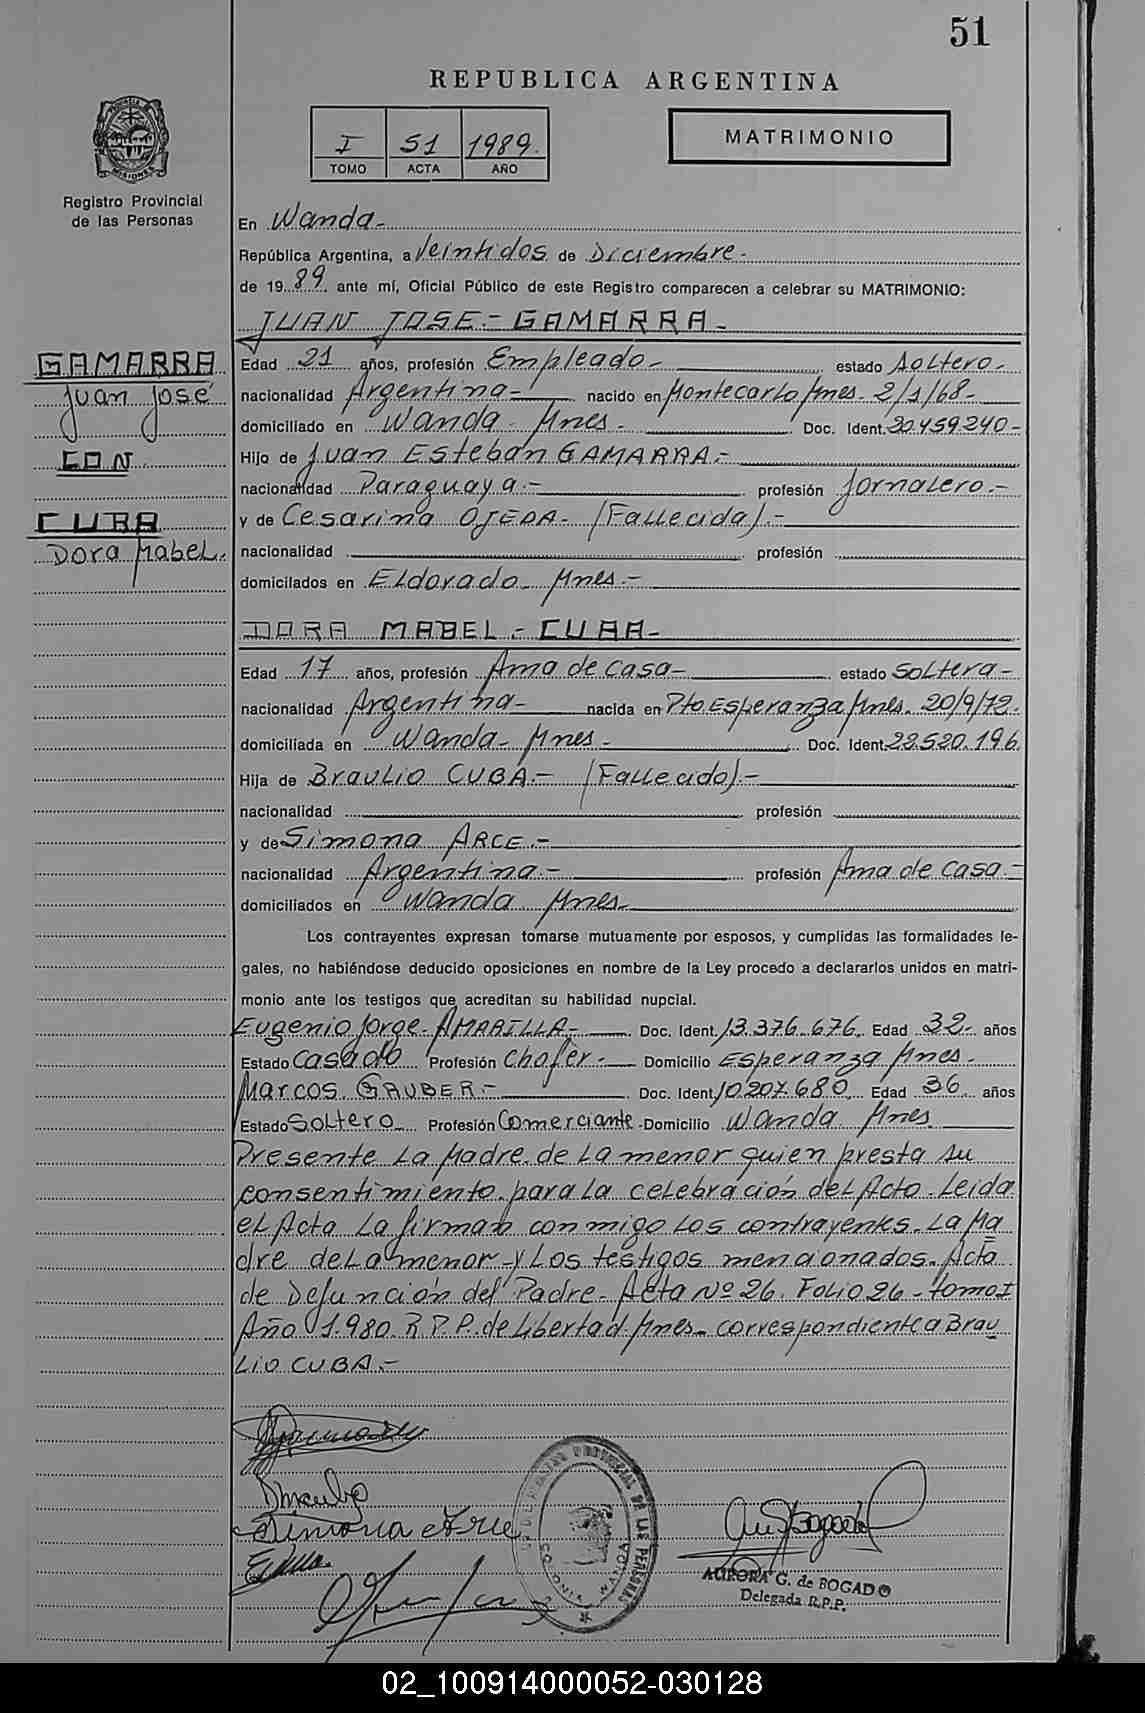 51
REPUBLICA ARGENTINA
I 51 1989.
TOMO ACTA AÑO
MATRIMONIO
Registro Provincial
de las Personas
En Wanda.-
República Argentina, a Veintidos de Diciembre.-
de 1989 ante mí, Oficial Público de este Registro comparecen a celebrar su MATRIMONIO:
JUAN JOSE.- GAMARRA.-
GAMARRA
Juan José
CON
CUBA
Dora Mabel.
Edad 21 años, profesión Empleado.- estado Soltero.-
nacionalidad Argentina.- nacido en Montecarlo Mnes. 2/1/68.-
domiciliado en Wanda Mnes.- Doc. Ident. 20.459.240-
Hijo de Juan Esteban GAMARRA.-
nacionalidad Paraguaya.- profesión Jornalero.-
y de Cesarina OJEDA.- (Fallecida).-
nacionalidad profesión
domiciliados en Eldorado Mnes.-
DORA MABEL.- CUBA.-
Edad 17 años, profesión Ama de casa.- estado Soltera-
nacionalidad Argentina.- nacida en Pto Esperanza Mnes. 20/9/72.
domiciliada en Wanda- Mnes.- Doc. Ident. 22.520.196
Hija de Braulio CUBA.- (Fallecido).-
nacionalidad profesión
y de Simona ARCE.-
nacionalidad Argentina.- profesión Ama de casa.-
domiciliados en Wanda Mnes.
Los contrayentes expresan tomarse mutuamente por esposos, y cumplidas las formalidades le-
gales, no habiéndose deducido oposiciones en nombre de la Ley procedo a declararlos unidos en matri-
monio ante los testigos que acreditan su habilidad nupcial.
Eugenio Jorge- AMARILLA.- Doc. Ident. 13.376.676. Edad 32- años
Estado Casado Profesión Chofer.- Domicilio Esperanza Mnes.-
Marcos GAUBER.- Doc. Ident. 10.207.680. Edad 36 años
Estado Soltero Profesión Comerciante - Domicilio Wanda Mnes.
Presente la Madre de la menor quien presta su
consentimiento para la celebración del Acto. Leida
el Acta la firman conmigo los contrayentes. La Ma
dre de la menor- y los testigos mencionados. Acta
de Defunción del Padre- Acta Nº 26. Folio 26- tomo I
Año 1.980. R.P.P. de Libertad Mnes- correspondiente a Brau
lio CUBA.-
Simona Arce
AURORA G. de BOGADO
Delegada R.P.P.
02_100914000052-030128